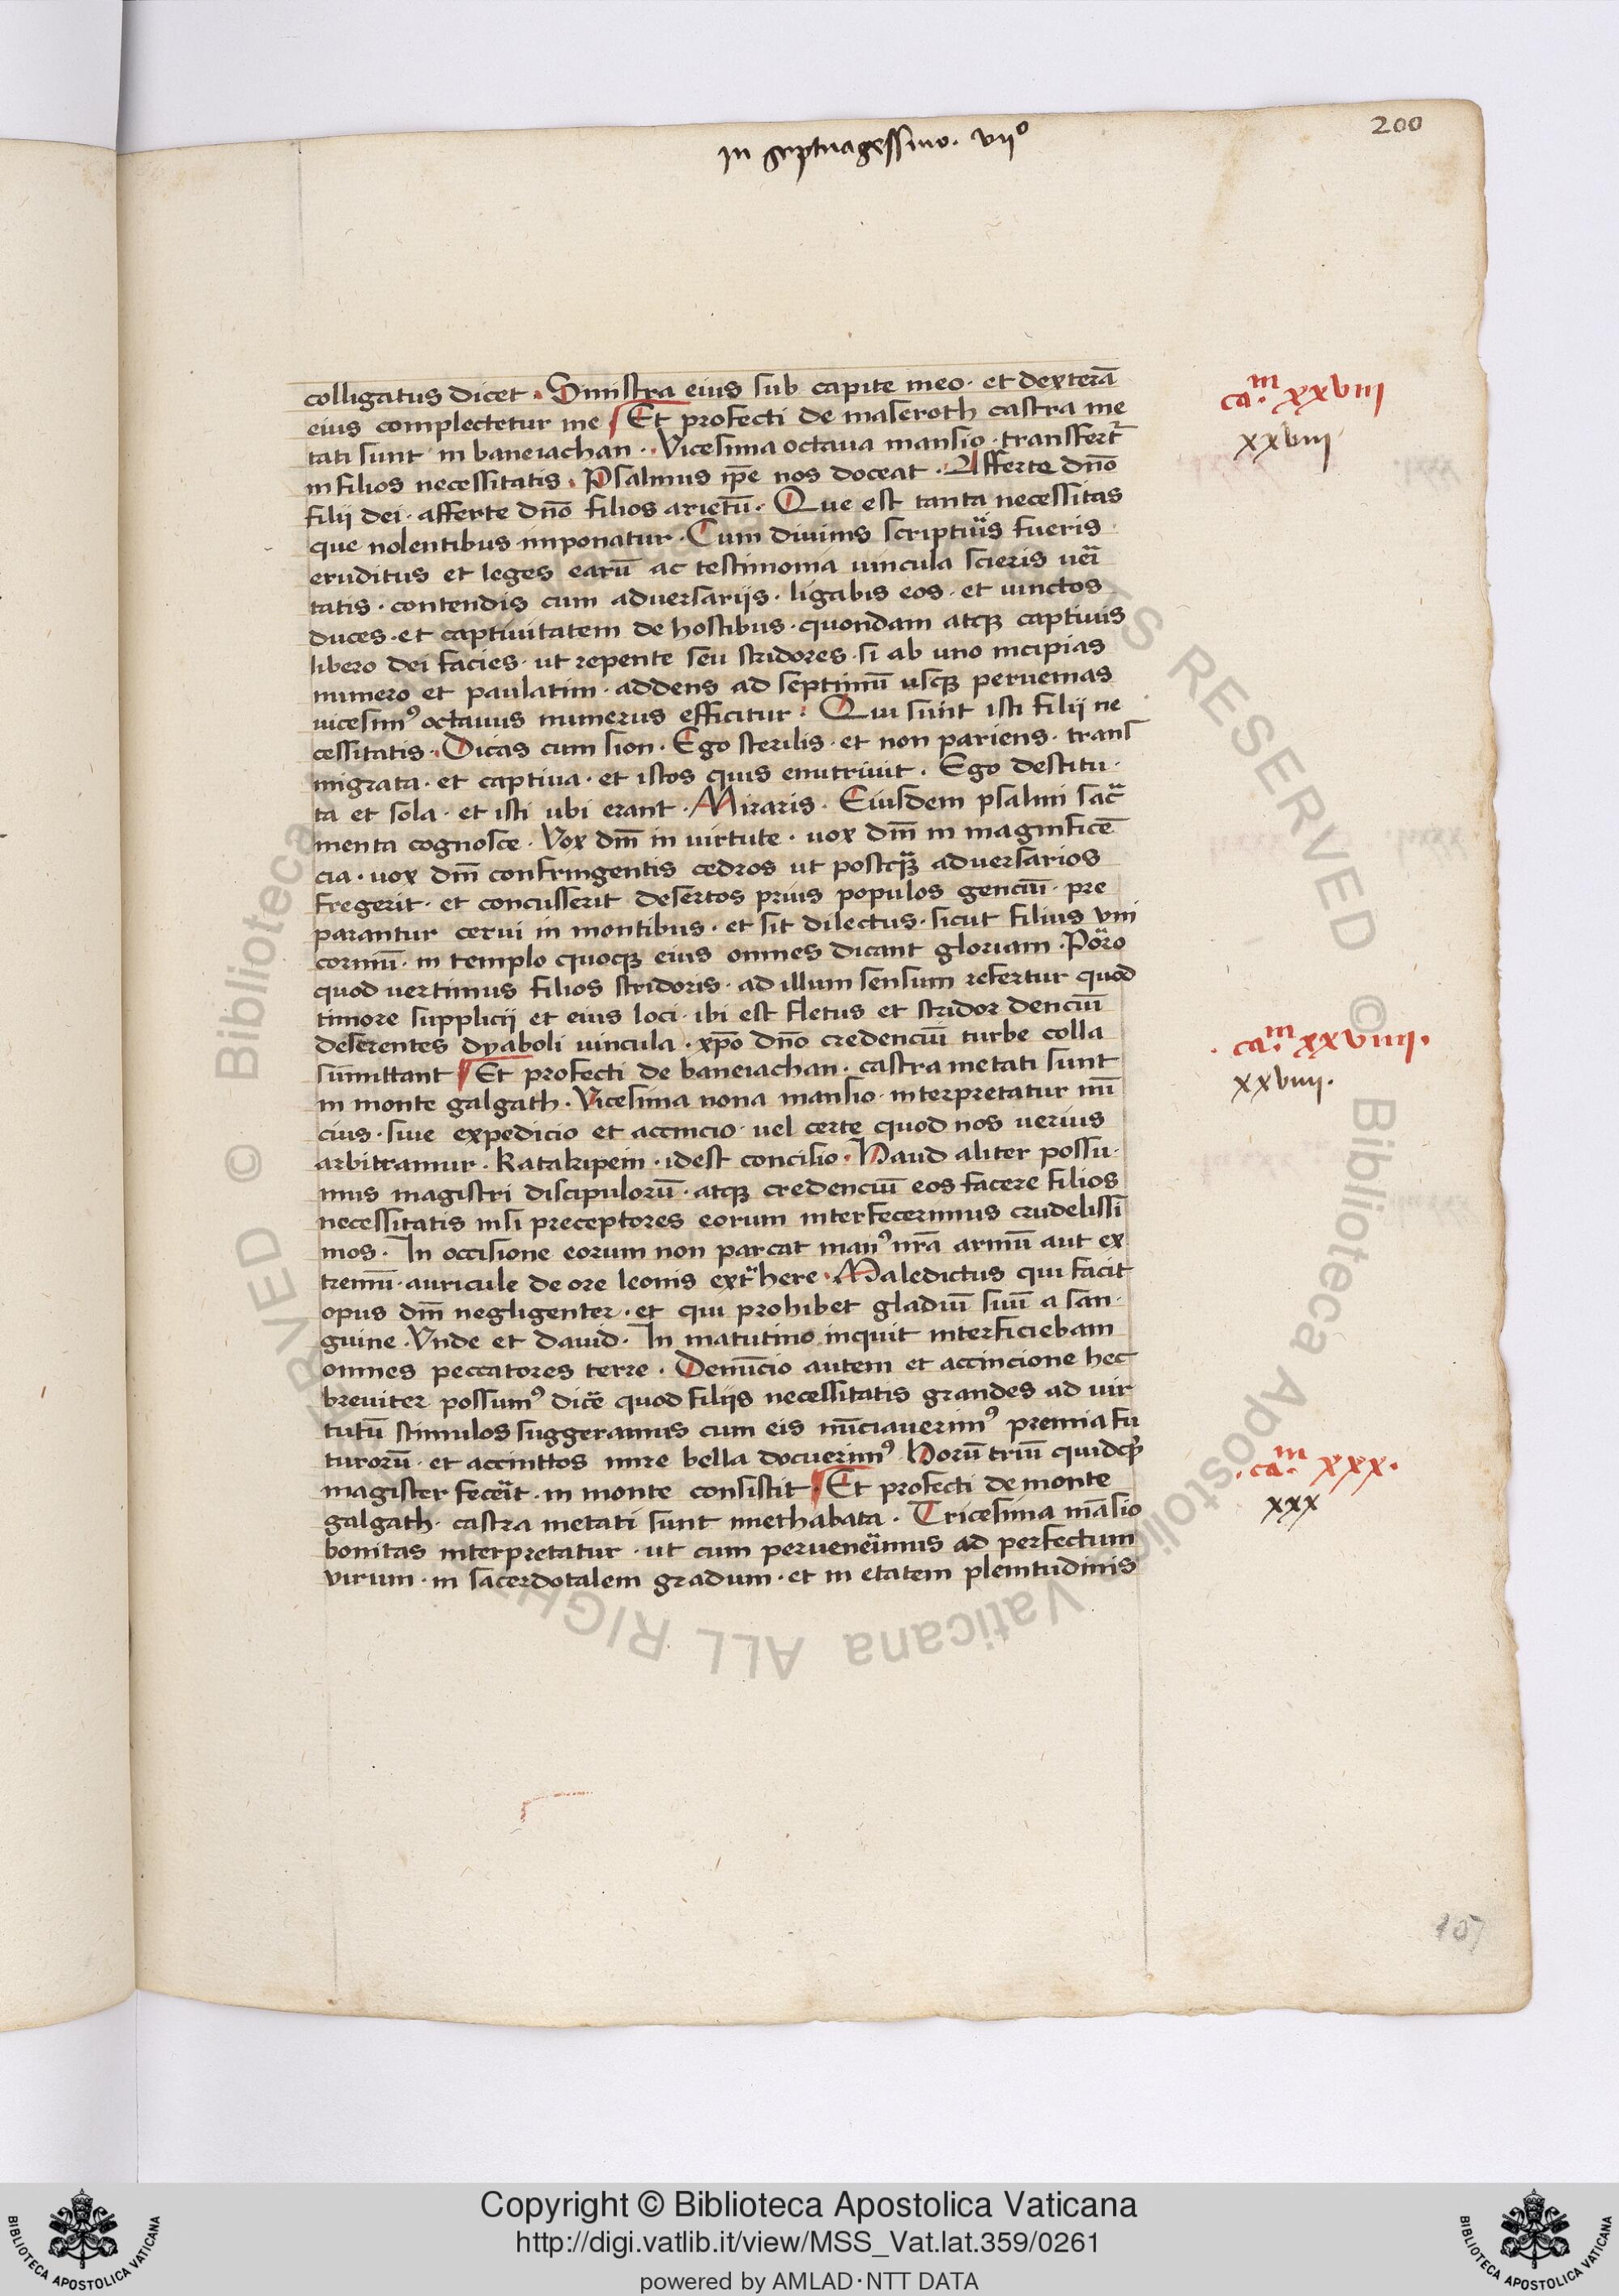 200
in septuagessimo. vii°
colligatus dicet. Sinistra eius sub capite meo. et dexterā
eius complectetur me Et profecti de maseroth castra me
tati sunt in baneiachan. Vicesima octaua mansio. transfert᷑
in filios necessitatis. Psalmus ip̄e nos doceat. Afferte dn̄o
filij dei. afferte dn̄o filios arietū. Que est tanta necessitas
que nolentibus imponatur. Cum diuinis scriptur̄is fueris
eruditus et leges earū ac testimonia uincula scieris uer̄i
tatis. contendis cum aduersarijs. ligabis eos. et uinctos
duces. et captiuitatem de hostibus. quondam atqꝫ captiuis
libero dei facies. ut repente seu stridores. si ab uno incipias
numero et paulatim. addens ad septimū usqꝫ peruenias
uicesimꝰ octauus numerus efficitur. Qui sunt isti filij ne
cessitatis. Dicas cum sion. Ego sterilis. et non pariens. trans
migrata. et captiua. et istos quis enutriuit. Ego destitu
ta et sola. et isti ubi erant. Miraris. Eiusdem psalmi sac̄
menta cognosce. Vox dn̄i in uirtute. uox dn̄i in magnificē
cia. uox dn̄i confringentis cedros ut postqꝫ̄ aduersarios
fregerit. et concusserit desertos prius populos genciū. pre
parantur cerui in montibus. et sit dilectus. sicut filius vni
corniū. in templo quoqꝫ eius omnes dicant gloriam. Por̄o
quod uertimus filios stridoris. ad illum sensum refertur quod
timore supplicij et eius loci. ibi est fletus et stridor denciū
deserentes dyaboli uincula. xp̄o dn̄o credenciū turbe colla
sum̄ittant Et profecti de baneiachan. castra metati sunt
in monte galgath. Vicesima nona mansio. interpretatur nū
cius. siue expedicio et accincio. uel certe quod nos uerius
arbitramur. Katakipein. idest concilio. Haud aliter possu
mus magistri discipulorū. atqꝫ credenciū eos facere filios
necessitatis nisi preceptores eorum interfecerimus crudelissi
mos. In occisione eorum non parcat manꝰ nr̄a armū aut ex
tremū. auricule de ore leonis extr̄here. Maledictus qui facit
opus dn̄i negligenter. et qui prohibet gladiū suū a san
guine. Vnde et dauid. In matutino inquit interficiebam
omnes peccatores terre. Denūcio autem et accincione hec
breuiter possumꝰ dic̄e quod filijs necessitatis grandes ad uir
tutū stimulos suggeramus cum eis nūciauerimꝰ premia fu
turorū. et accinttos inire bella docuerimꝰ. Horū triū quidqꝫ
magister fecer̄it. in monte consistit. Et profecti de monte
galgath. castra metati sunt iniethabata. Tricesima māsio
bonitas interpretatur. ut cum peruener̄imus ad perfectum
virum. in sacerdotalem gradum. et in etatem plenitudinis
ca.m xxviii
xxviii
ca.m xxviiii.
xxviiii.
.ca.m xxx.
xxx
107
Copyright © Biblioteca Apostolica Vaticana
http://digi.vatlib.it/view/MSS_Vat.lat.359/0261
powered by AMLAD·NTT DATA
BIBLIOTECA APOSTOLICA VATICANA
BIBLIOTECA APOSTOLICA VATICANA
© Biblioteca Apostolica Vaticana ALL RIGHTS RESERVED